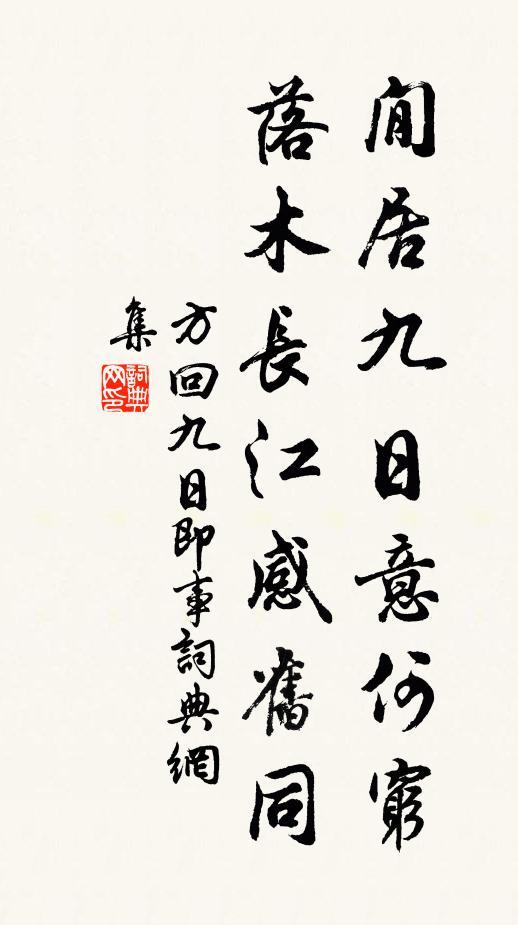 閒居九日意何窮
落木長江感舊同
方回九日即事詞典網
集
詞典网印